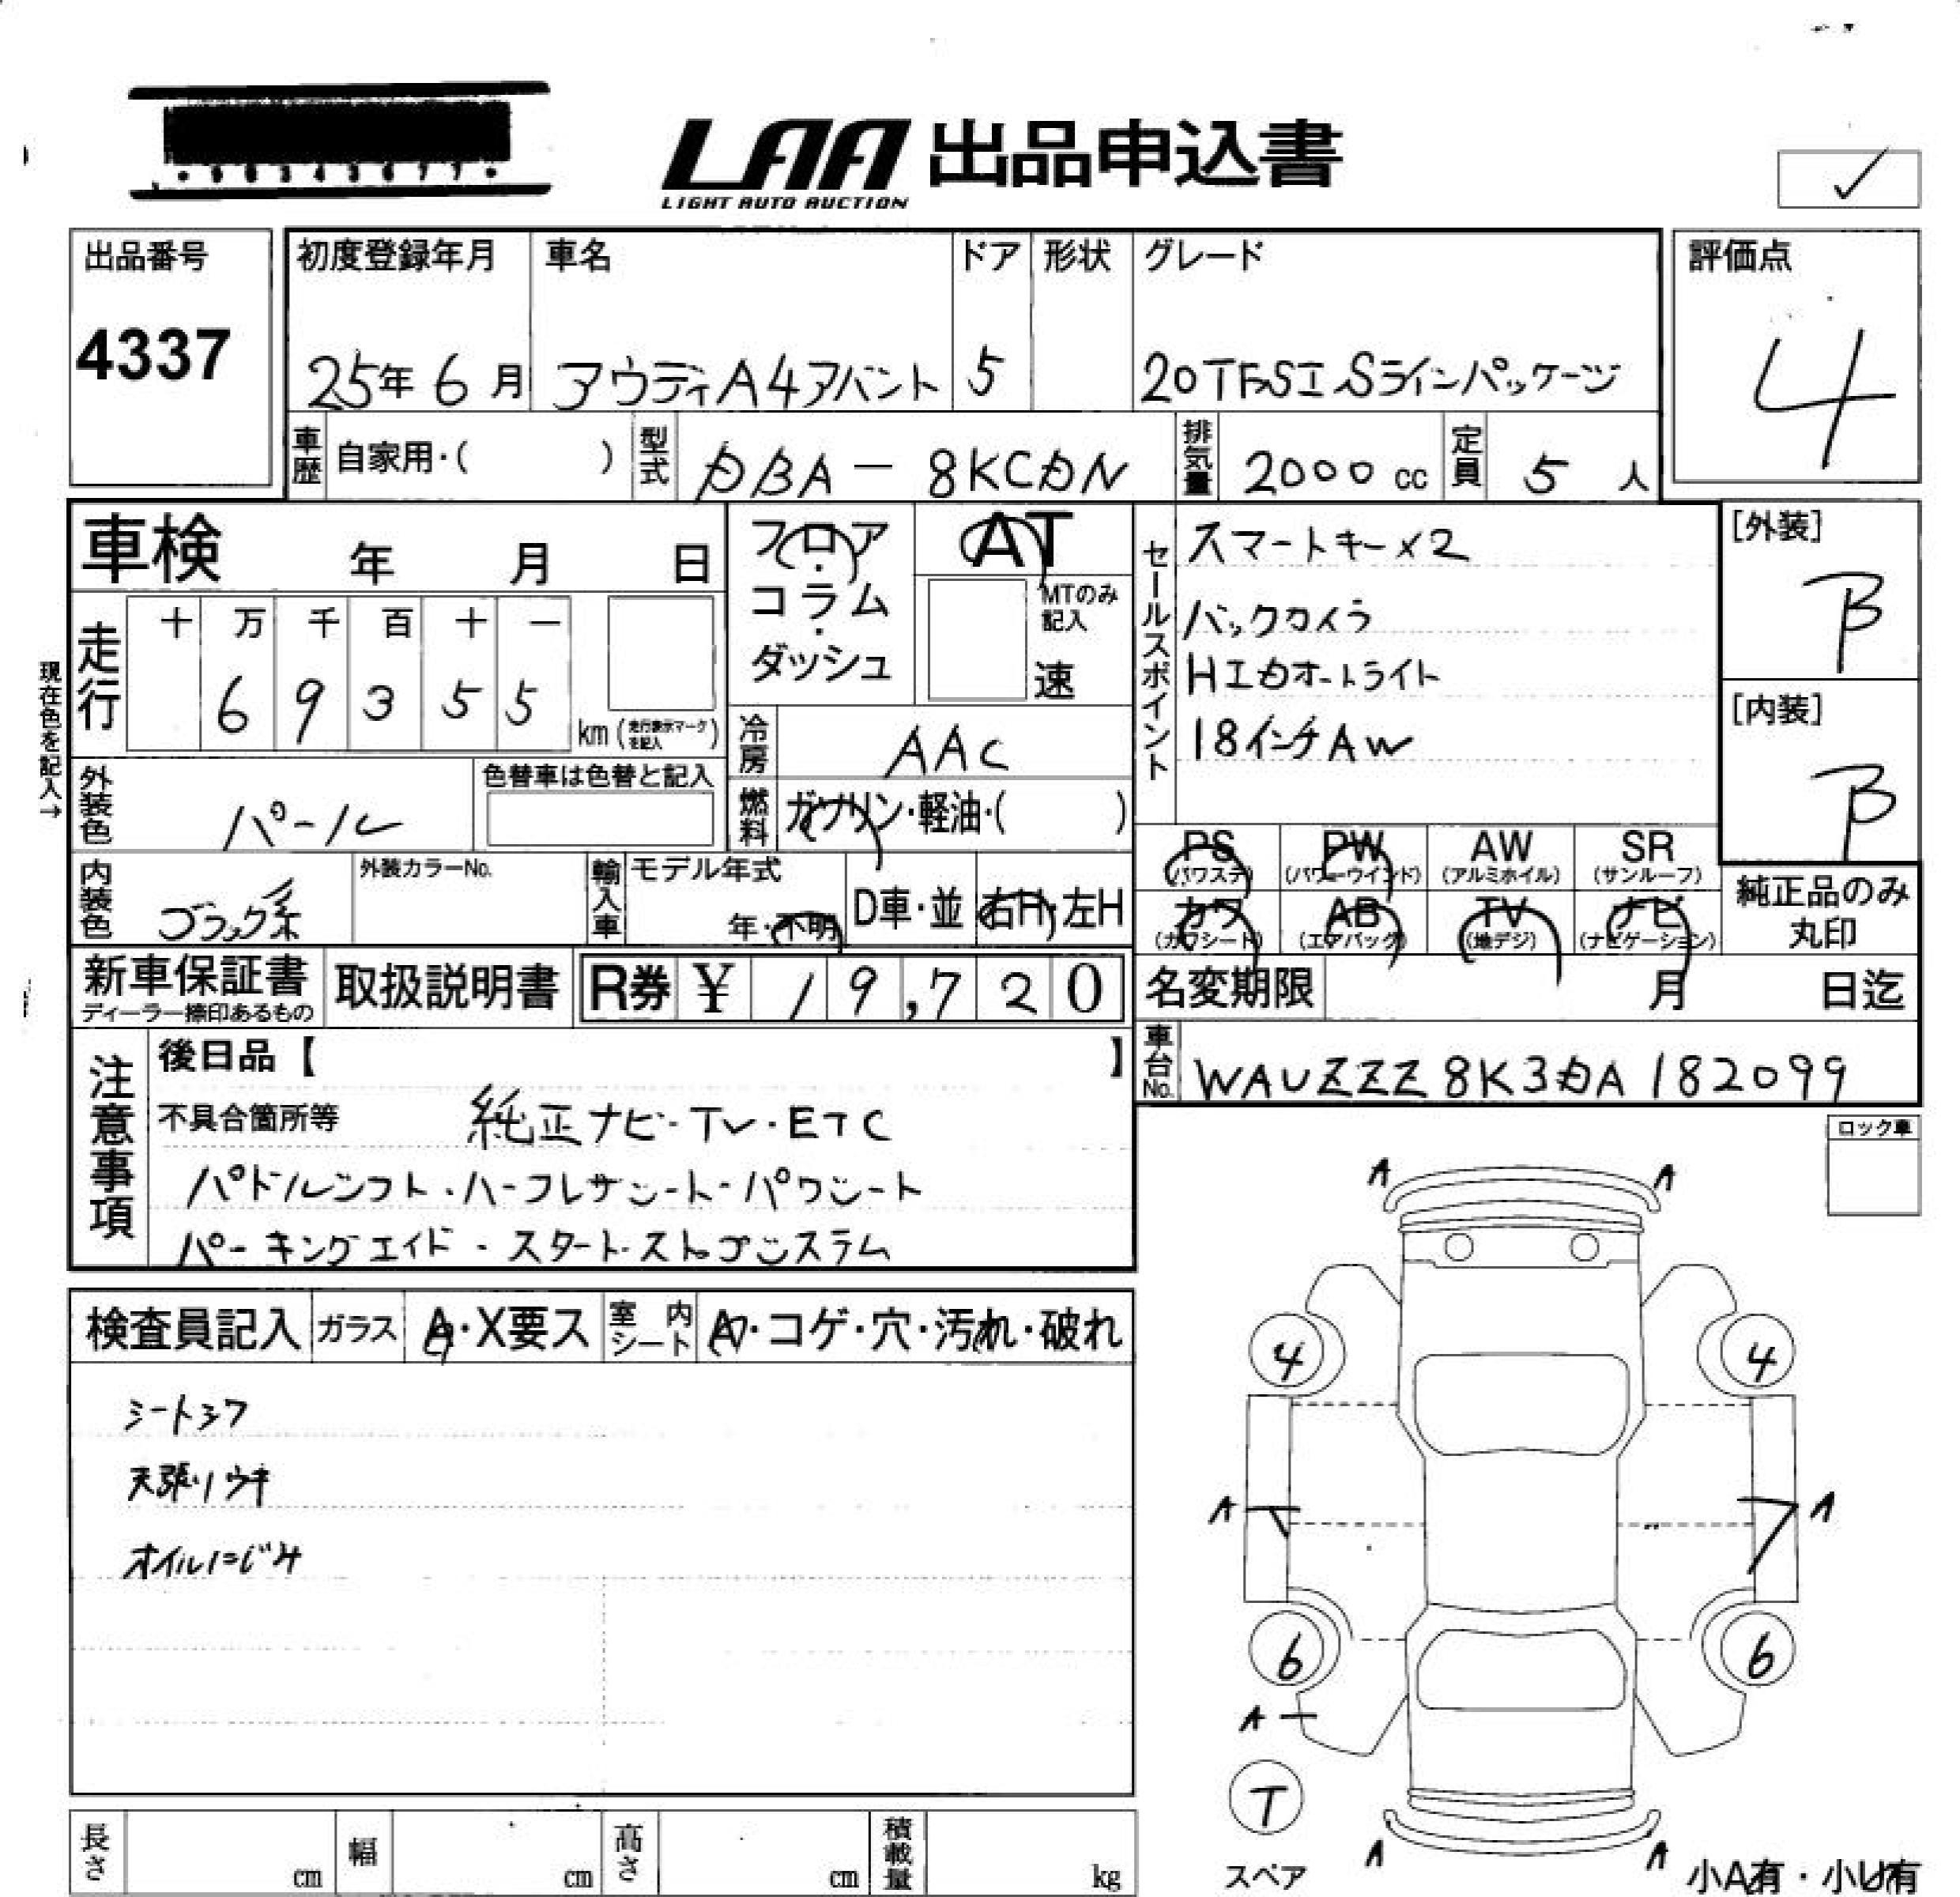 LAA 出品申込書
LIGHT AUTO AUCTION
出品番号 初度登録年月 車名 ドア 形状 グレード 評価点
4337 25年 6月 アウディA4アバント 5 20TFSI Sラインパッケージ 4
車歴 自家用・( ) 型式 DBA-8KCDN 排気量 2000 cc 定員 5 人
車検 年 月 日 フロア・コラム・ダッシュ AT セールスポイント スマートキー×2 [外装]
走行 十 万 千 百 十 一 MTのみ記入 バックカメラ B
6 9 3 5 5 km (走行表示マークを記入) 速 HIDオートライト [内装]
現在色を記入→ 冷房 AAC 18インチAW B
外装色 パール 色替車は色替と記入 燃料 ガソリン・軽油・( )
PS AW SR PW
(パワステ) (パワーウインド) (アルミホイル) (サンルーフ)
内装色 ブラック系 外装カラーNo. 輸入車 モデル年式 年・不明 D車・並 右H・左H カワ AB TV ナビ 純正品のみ丸印
(カワシート) (エアバック) (地デジ) (ナビゲーション)
新車保証書 取扱説明書 R券 ¥ 19,720 名変期限 月 日迄
ディーラー捺印あるもの
注意事項 後日品【 】 車台No. WAUZZZ8K3DA182099
不具合箇所等 純正ナビ・TV・ETC
パドルシフト・ハーフレザーシート・パワシート
パーキングエイド・スタートストップシステム
ロック車
検査員記入 ガラス A・X要ス 室内シート 穴・コゲ・穴・汚れ・破れ
シートシワ
天張りウキ
オイルにじみ
A A
4 4
A A
6 6
A
T
スペア
A A
小A有・小U有
長さ cm 幅 cm 高さ cm 積載量 kg